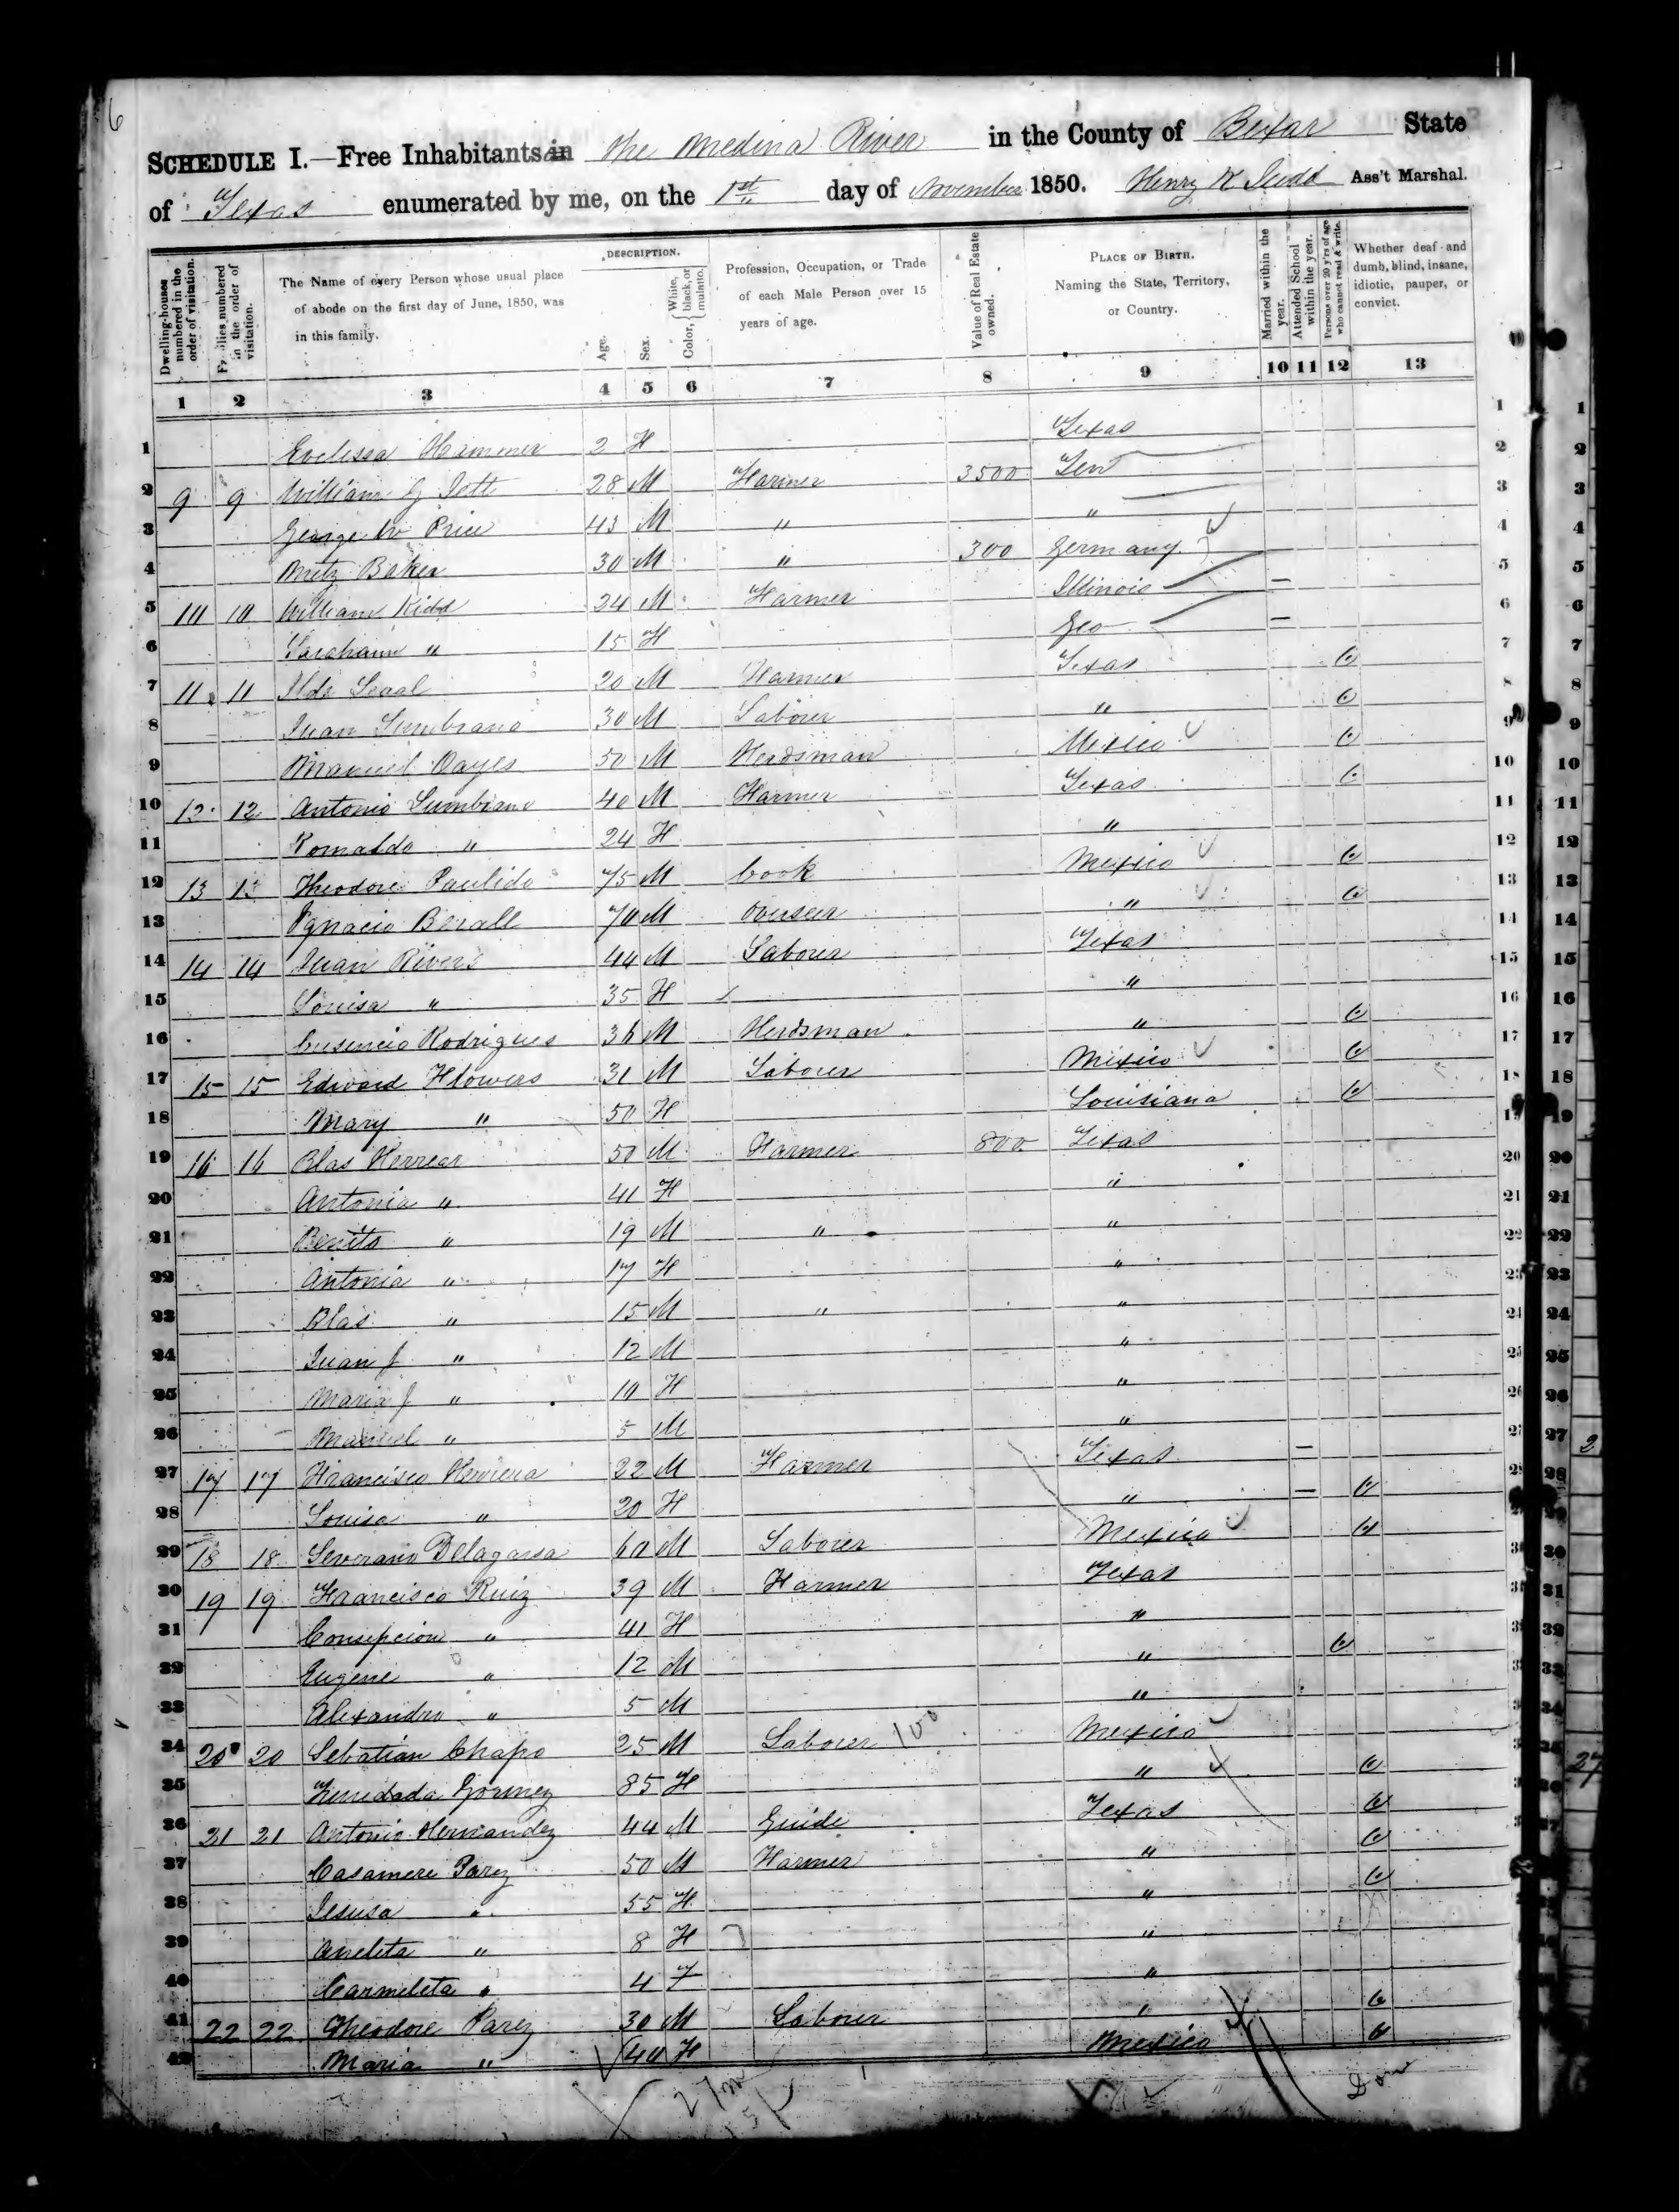 6
SCHEDULE I.—Free Inhabitants in the Medina River in the County of Bexar State
of Texas enumerated by me, on the 1st day of November 1850. Henry K Judd Ass't Marshal.
Dwelling-houses numbered in the order of visitation.
Families numbered in the order of visitation.
The Name of every Person whose usual place of abode on the first day of June, 1850, was in this family.
DESCRIPTION.
Age.
Sex.
Color, { White, black, or mulatto.
Profession, Occupation, or Trade of each Male Person over 15 years of age.
Value of Real Estate owned.
PLACE OF BIRTH.
Naming the State, Territory, or Country.
Married within the year.
Attended School within the year.
Persons over 20 y'rs of age who cannot read & write.
Whether deaf and dumb, blind, insane, idiotic, pauper, or convict.
1 2 3 4 5 6 7 8 9 10 11 12 13
1 Evelissa Hammer 2 F Texas 1
2 9 9 William G Jett 28 M Farmer 3500 Ten 2
3 George W Price 43 M " " 3
4 Metz Baker 30 M " 300 Germany 4
5 10 10 William Kidd 24 M Farmer Illinois 5
6 Sarahann " 15 F Geo 6
7 11 11 Ildo Leaal 20 M Farmer Texas 7
8 Juan Sumbrano 30 M Laborer " 8
9 Manuel Dayes 50 M Herdsman Mexico 9
10 12 12 Antonio Sumbrano 40 M Farmer Texas 10
11 Romaldo " 24 F " 11
12 13 13 Theodore Paulido 75 M Cook Mexico 12
13 Ygnacio Berall 70 M Overseer " 13
14 14 14 Juan Rivers 44 M Laborer Texas 14
15 Louisa " 35 F " 15
16 Cusencio Rodrigues 36 M Herdsman " 16
17 15 15 Edward Flowers 31 M Laborer Mexico 17
18 Mary " 50 F Louisiana 18
19 16 16 Blas Herrear 50 M Farmer 800 Texas 19
20 Antonia " 41 F " 20
21 Benito " 19 M " " 21
22 Antonia " 17 F " 22
23 Blas " 15 M " " 23
24 Juan J " 12 M " 24
25 Maria J " 10 F " 25
26 Manuel " 5 M " 26
27 17 17 Francisco Herrera 22 M Farmer Texas 27
28 Louisa " 20 F "
29 18 18 Severano Delagarsa 60 M Laborer Mexico
30 19 19 Francisco Ruiz 39 M Farmer Texas
31 Consepcion " 41 F "
32 Eugene " 12 M "
33 Alexandro " 5 M "
34 20 20 Sebatian Chapo 25 M Laborer 100 Mexico
35 Gomez 85 F "
36 21 21 Antonio Hernandez 44 M Guide Texas
37 Casamere Parez 50 M Farmer "
38 Jesusa " 55 F "
39 Aneleta " 8 F "
40 Carmeleta " 4 F "
41 22 22 Theodore Parez 30 M Laborer "
42 Maria " 40 F Mexico
27 m
15 f